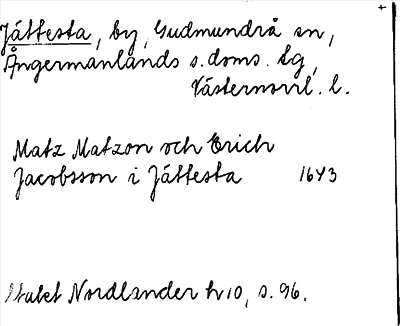 Jättesta, by, Gudmundrå sn,
Ångermanlands s. doms. lg,
Västernorrl. l.
Matz Matzon och Erich
Jacobsson i Jättesta 1643
Nordlander h 10, s. 96.